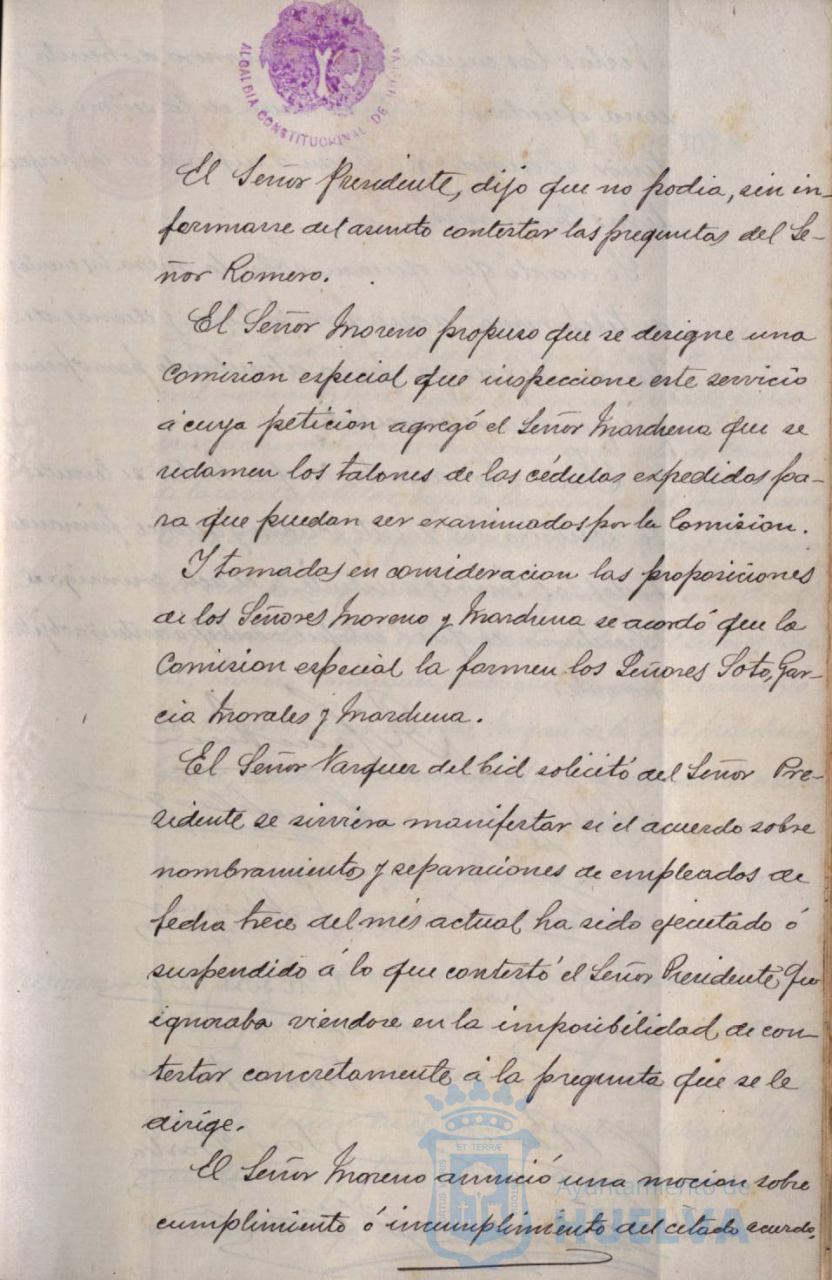 ALCALDIA CONSTITUCIONAL DE HUELVA
El Señor Presidente, dijo que no podia, sin in-
formarse del asunto contestar las preguntas del Se-
ñor Romero.
El Señor Moreno propuso que se designe una
Comision especial que inspeccione este servicio
á cuya peticion agregó el Señor Marchena que se
reclamen los talones de las cédulas expedidas pa-
ra que puedan ser examinados por la Comision.
Y tomadas en consideracion las proposiciones
de los Señores Moreno y Marchena se acordó que la
Comision especial la formen los Señores Soto, Gar-
cia Morales y Marchena.
El Señor Vazquez del Cid solicitó del Señor Pre-
sidente se sirviera manifestar si el acuerdo sobre
nombramiento y separaciones de empleados de
fecha trece del més actual ha sido ejecutado ó
suspendido á lo que contestó el Señor Presidente que
ignoraba viendose en la imposibilidad de con-
testar concretamente á la pregunta que se le
dirige.
El Señor Moreno anunció una mocion sobre
cumplimiento ó incumplimiento del citado acuerdo.
ET TERRÆ
Ayuntamiento de
HUELVA